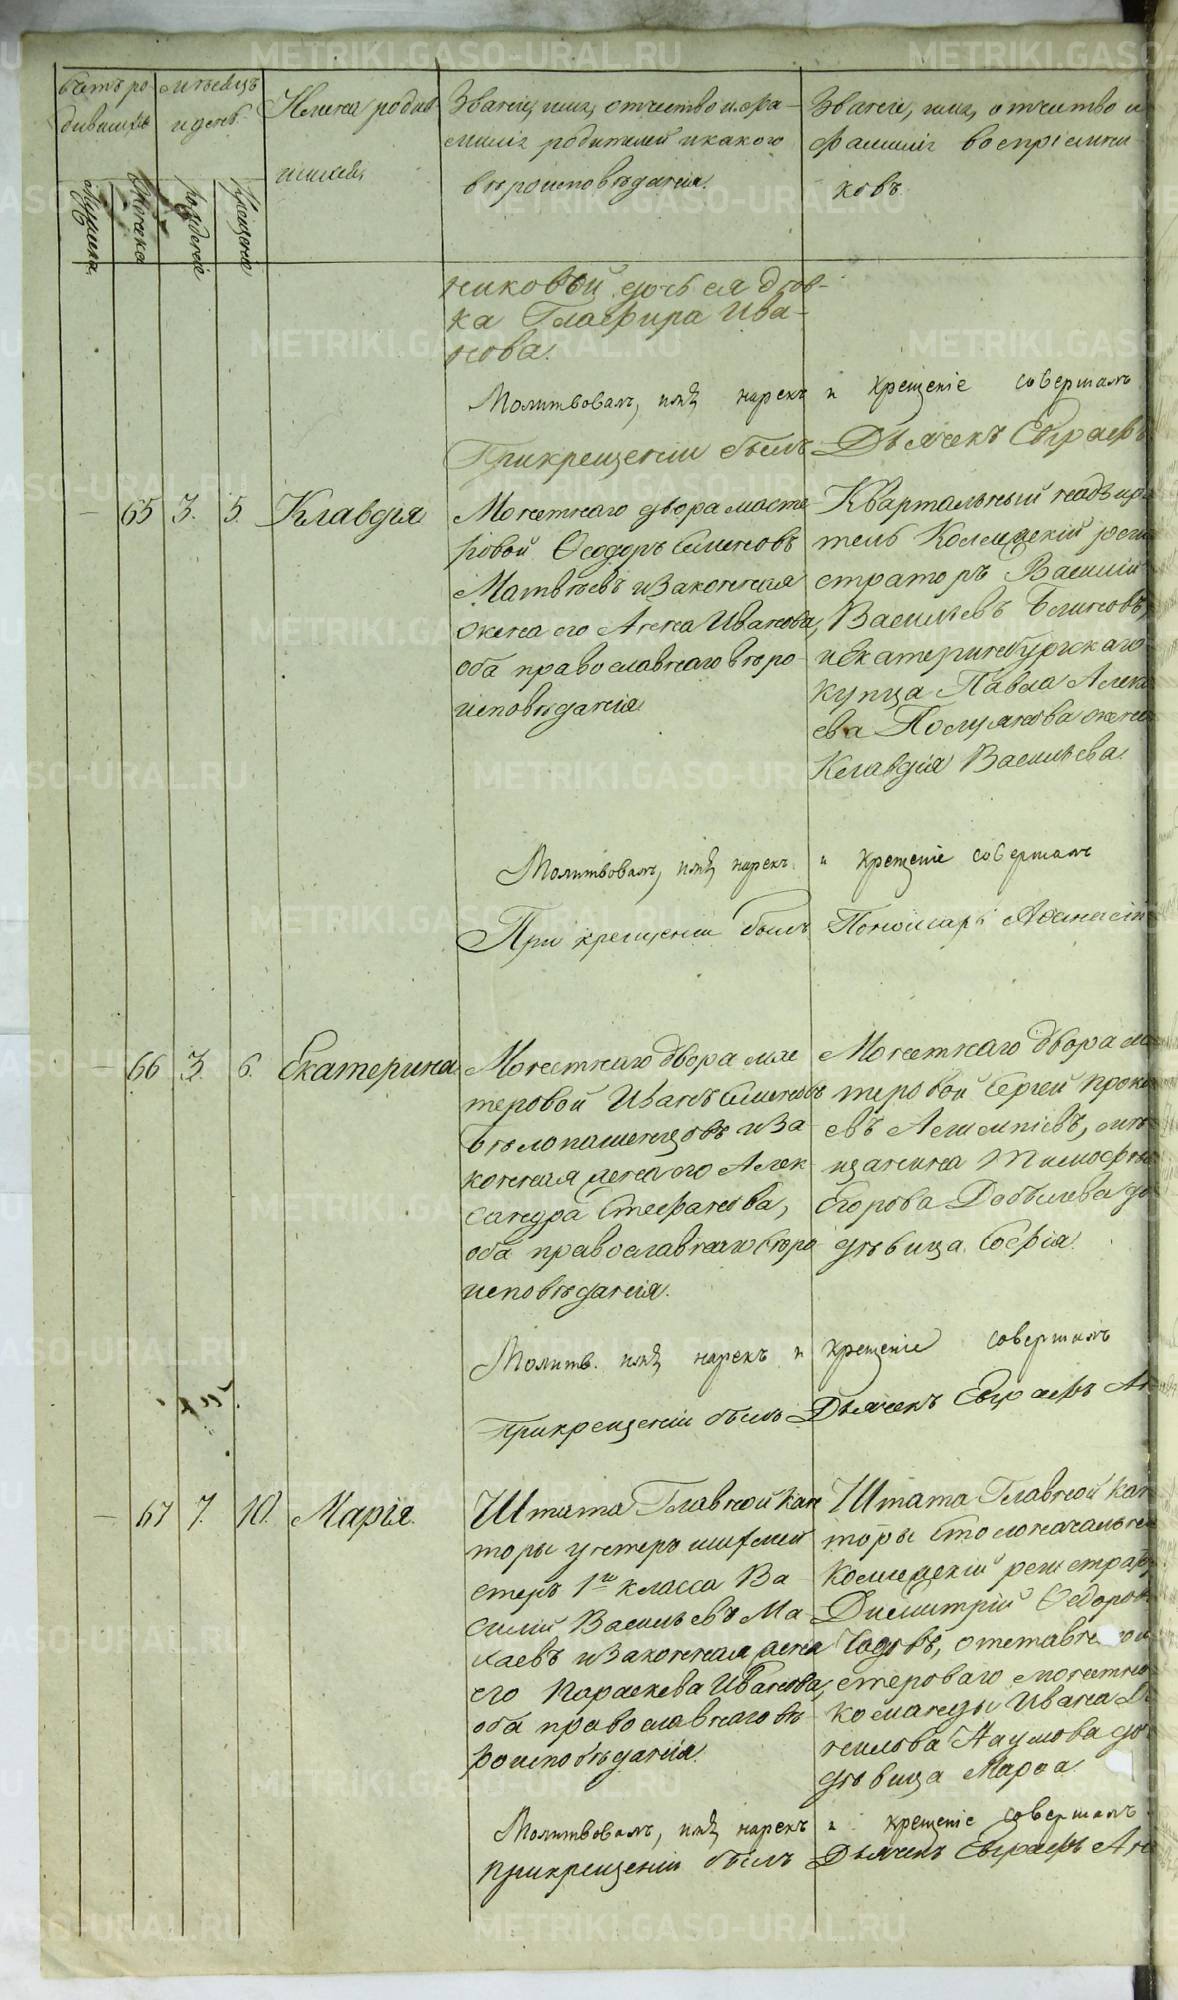 METRIKI.GASO-URAL.RU
Счетъ ро-
дившихся
Мужеска
Женска
Мѣсяцъ
и день
рожденіе
крещеніе
Имена родив-
шихся
Званіе, имя, отчество и фа-
милія родителей и какого
вѣроисповѣданія.
Званіе, имя, отчество и
фамилія воспріемни-
ковъ.
никовой дочь ея дѣв-
ка Глафира Ива-
нова.
Молитвовалъ, имя нарекъ и крещеніе совершалъ
При крещеніи былъ Дьячекъ Евграфъ
— 65 3. 5. Клавдія
Монетнаго двора масте
ровой Ѳеодоръ Симеоновъ
Матвѣевъ и законная
жена его Анна Иванова,
оба православнаго вѣро-
исповѣданія
Квартальный надзира
тель Коллежскій реги
страторъ Василій
Васильевъ Блиновъ,
и Екатеринбургскаго
купца Павла Алекс
ева Полуянова жена
Клавдія Васильева.
Молитвовалъ, имя нарекъ и крещеніе совершалъ
При крещеніи былъ Пономарь Аѳанасій
— 66 3. 6. Екатерина
Монетнаго двора мас
теровой Иванъ Симеоновъ
Бѣлопашенцовъ и за
конная жена его Алек
сандра Стефанова,
оба православнаго вѣро
исповѣданія.
Монетнаго двора мас
теровой Сергей Проко
евъ Алимпіевъ, мѣ
щанина Тимофея
Егорова Добылева до
дѣвица Софія.
Молитв. имя нарекъ и крещеніе совершалъ
При крещеніи былъ Дьячекъ Евграфъ Ан
— 67 7. 10. Марія.
Штата Главной кан
торы унтеръ шихмей
стеръ 1го класса Ва
силій Васильевъ Ма
каевъ и законная жена
его Параскева Иванова,
оба православнаго вѣ
роисповѣданія.
Штата Главной кан
торы Столоначальни
Коллежскій регистрат
Димитрій Ѳедоров
Чадовъ, отставной
стероваго монетно
команды Ивана Да
нилова Наумова до
дѣвица Марѳа
Молитвовалъ, имя нарекъ и крещеніе совершалъ
При крещеніи былъ Дьячекъ Евграфъ Ан